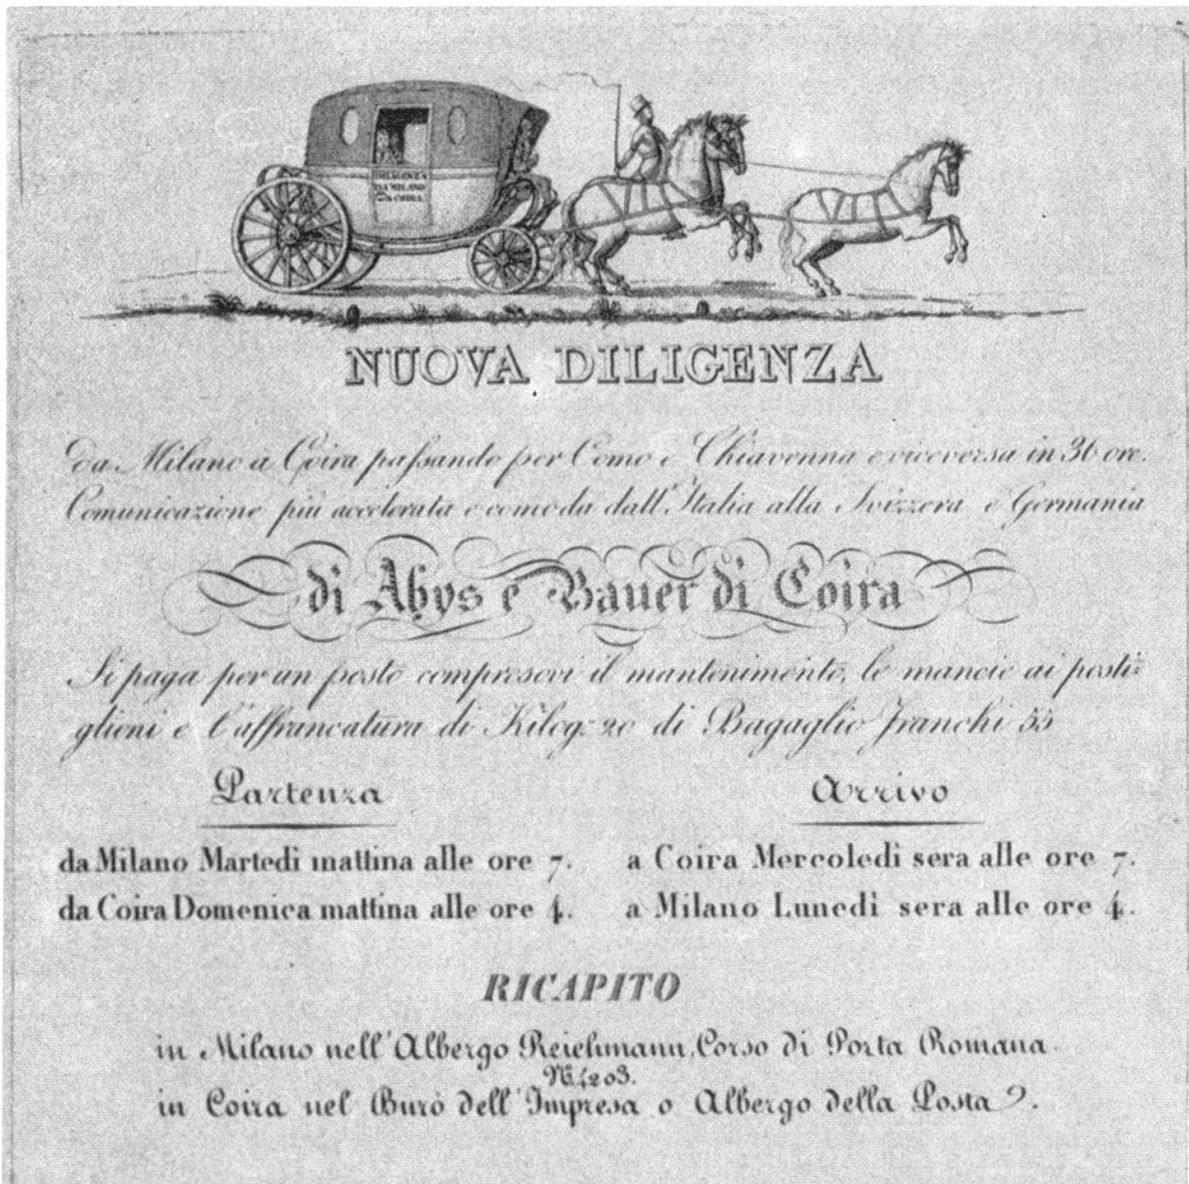 DILIGENZA
DA MILANO
A COIRA
NUOVA DILIGENZA
da Milano a Coira passando per Como e Chiavenna e viceversa in 36 ore.
Comunicazione più accelerata e comoda dall'Italia alla Svizzera e Germania
di Abys e Bauer di Coira
Si paga per un posto compresovi il mantenimento, le mancie ai posti-
glioni e l'affrancatura di Kilog. 20 di Bagaglio franchi 55
Partenza
Arrivo
da Milano Martedì mattina alle ore 7. a Coira Mercoledì sera alle ore 7.
da Coira Domenica mattina alle ore 4. a Milano Lunedì sera alle ore 4.
RICAPITO
in Milano nell'Albergo Reichmann, Corso di Porta Romana.
N. 4203.
in Coira nel Burò dell'Impresa o Albergo della Posta